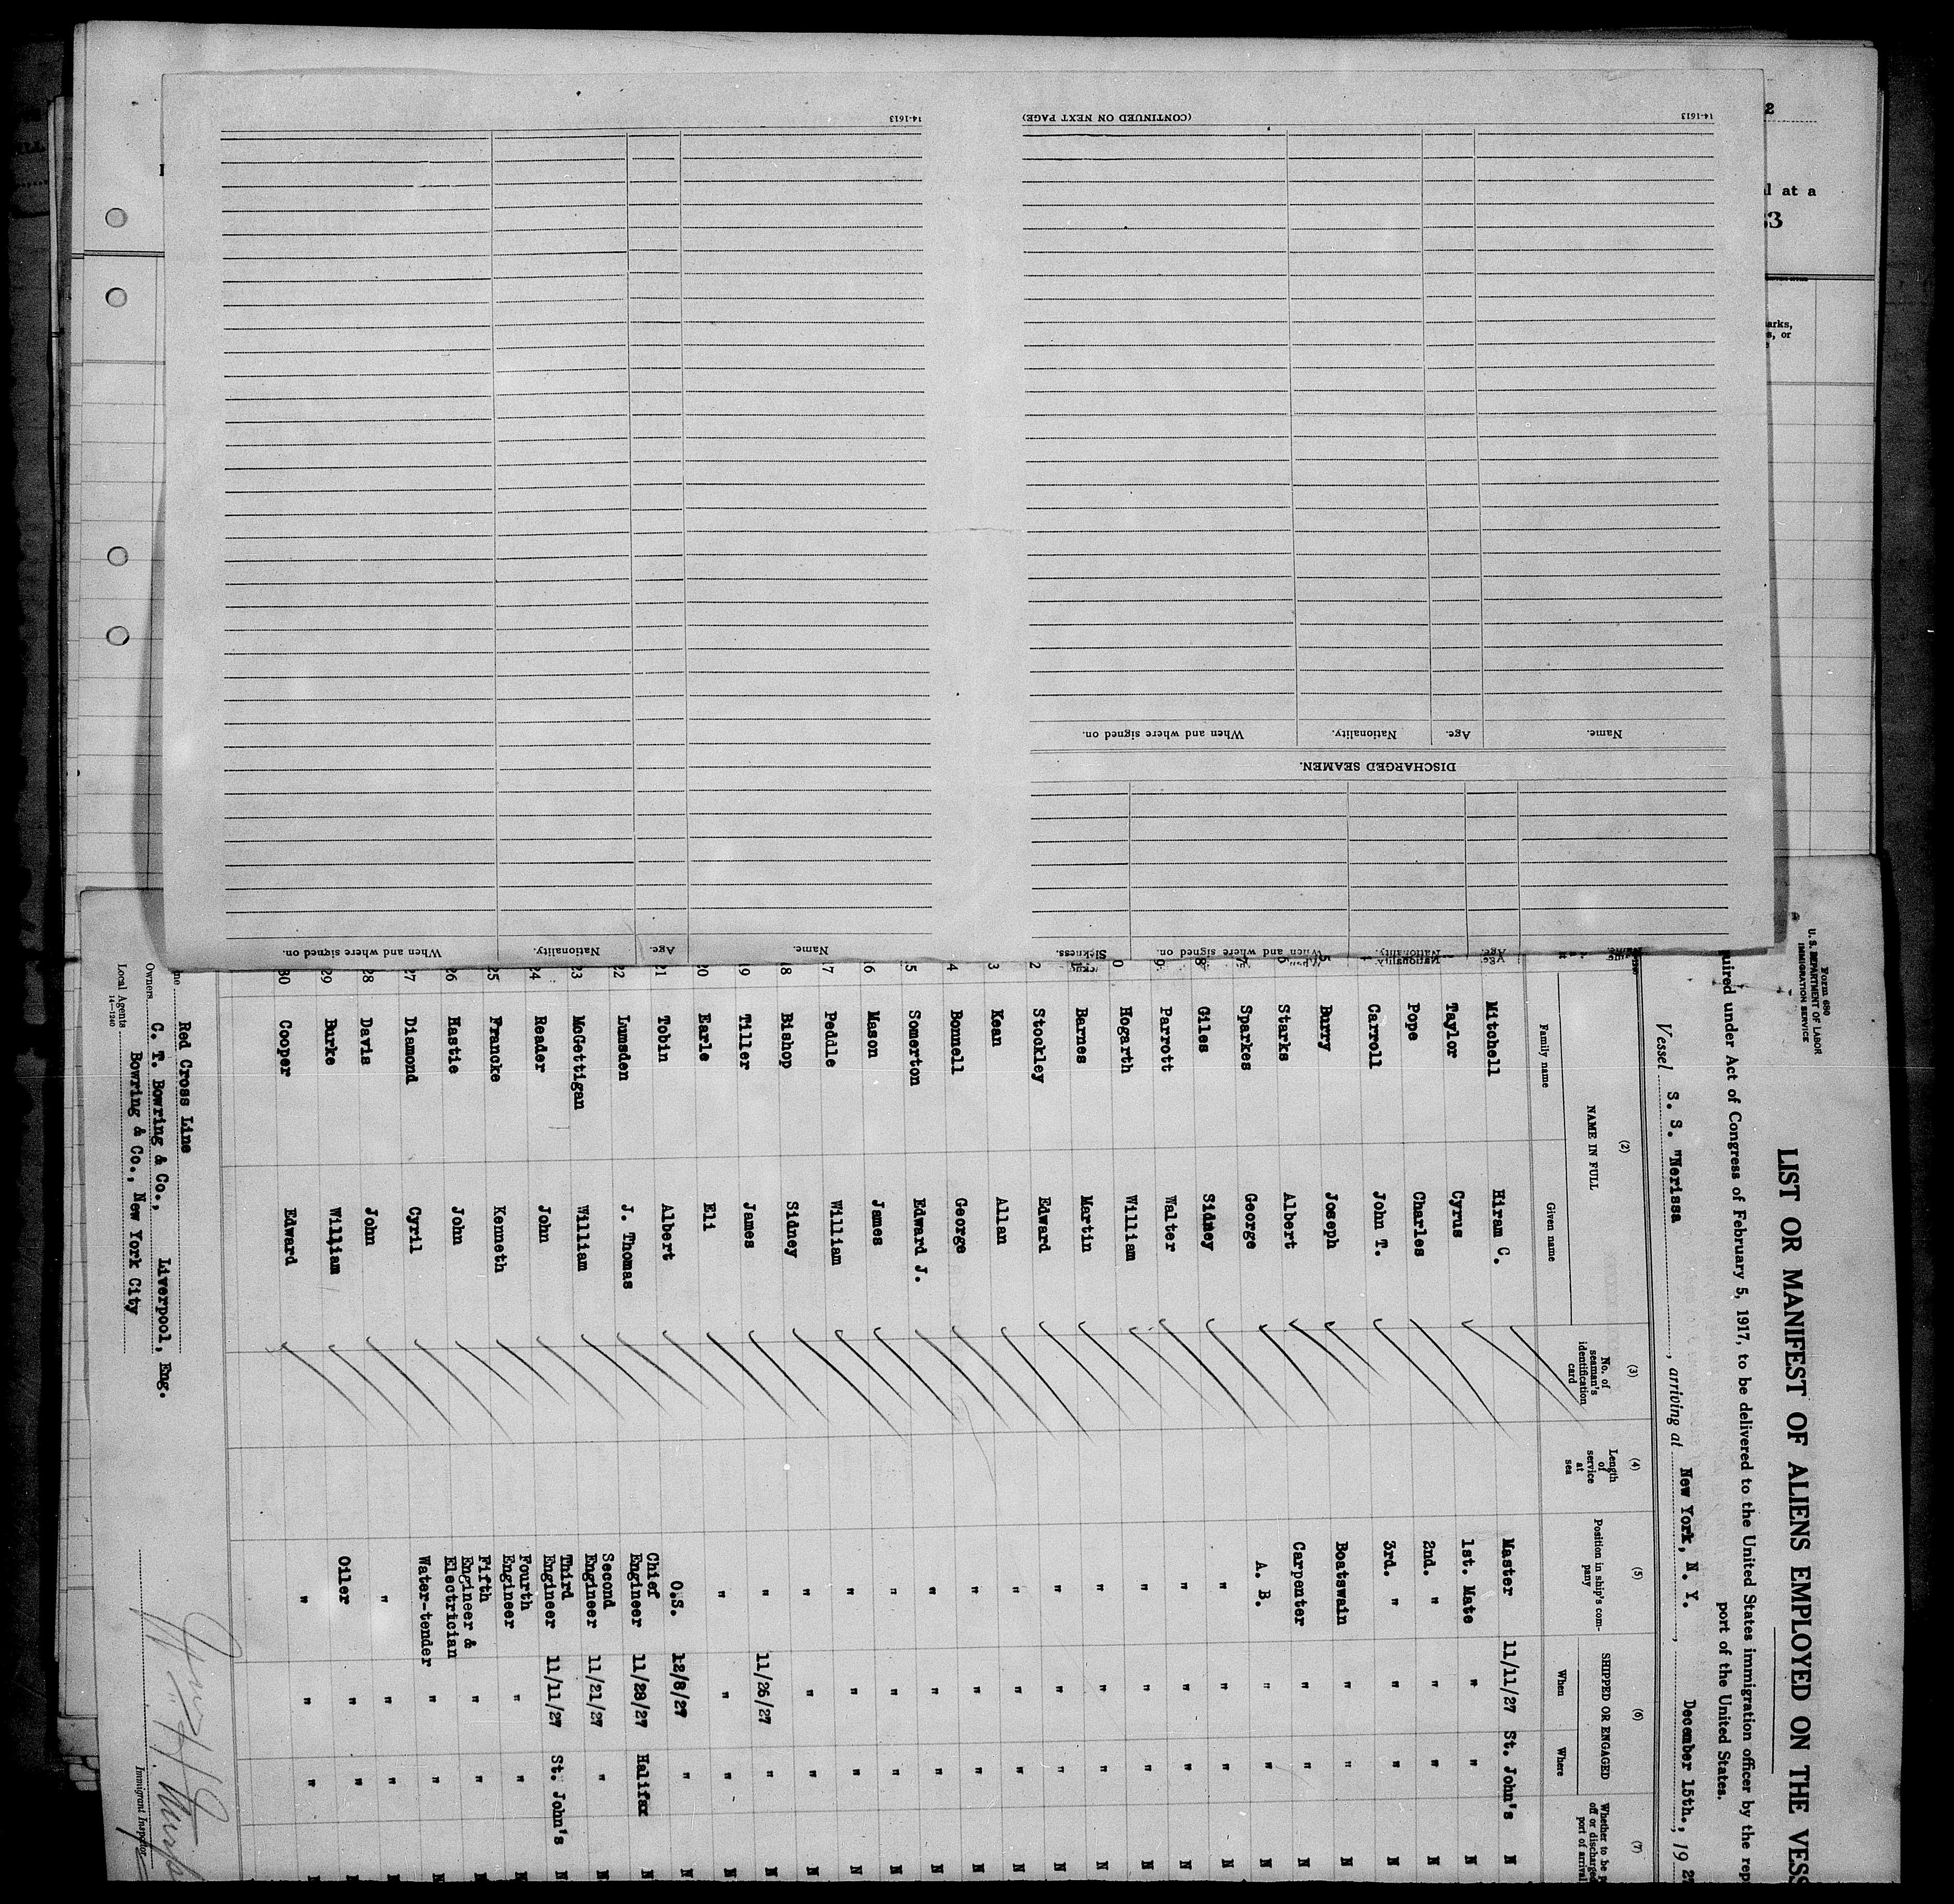 Name. Age. Nationality. When and where signed on. Sickness.
DISCHARGED SEAMEN.
Name. Age. Nationality. When and where signed on.
14-1613 (CONTINUED ON NEXT PAGE)
Name. Age. Nationality. When and where signed on.
14-1613
2
l at a
arks,
s, or
Form 680
U. S. DEPARTMENT OF LABOR
IMMIGRATION SERVICE
LIST OR MANIFEST OF ALIENS EMPLOYED ON THE VESS
uired under Act of Congress of February 5, 1917, to be delivered to the United States immigration officer by the rep
port of the United States.
Vessel S. S. "Nerissa , arriving at New York, N. Y. , December 15th., 19 27
(2) (3) (4) (5) (6) (7)
NAME IN FULL
Family name Given name
No. of seaman's identification card
Length of service at sea
Position in ship's company
SHIPPED OR ENGAGED
When Where
Whether to be
off or discharged
port of arrival
Mitchell Hiram C. Master 11/11/27 St. John's N
Taylor Cyrus 1st. Mate " " N
Pope Charles 2nd. " " " N
Carroll John T. 3rd. " " " N
Burry Joseph Boatswain " " N
Starks Albert Carpenter " " N
Sparkes George A. B. " " N
8 Giles Sidney " " " N
9 Parrott Walter " " " N
0 Hogarth William " " " N
Barnes Martin " " " N
2 Stockley Edward " " " N
3 Kean Allan " " " N
4 Bonnell George " " " N
5 Somerton Edward J. " " " N
16 Mason James " " " N
17 Peddle William " " " N
18 Bishop Sidney " " " N
19 Tiller James " 11/26/27 " N
20 Earle Eli " " " N
21 Tobin Albert O.S. 12/8/27 " N
22 Lumsden J. Thomas Chief Engineer 11/28/27 Halifax N
23 McGettigan William Second Engineer 11/21/27 " N
24 Reader John Third Engineer 11/11/27 St. John's N
25 Francke Kenneth Fourth Engineer " " N
26 Hastie John Fifth Engineer & Electrician " " N
27 Diamond Cyril Water-tender " " N
28 Davis John " " " N
29 Burke William Oiler " " N
30 Cooper Edward " " " N
Red Cross Line
Owners C. T. Bowring & Co., Liverpool, Eng.
Local Agents Bowring & Co., New York City
14—1240
Immigrant Inspector